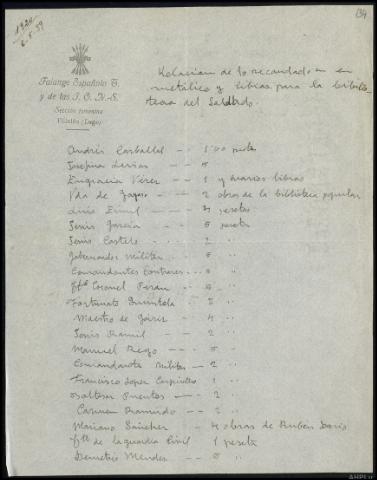 134
1924
6-5-39
Falange Española T.
y de las J. O. N.-S.
Sección femenina
Villalba (Lugo)
Relacion de lo recaudado en
metálico y libros para la biblio-
teca del Soldado.
Andrés Carballal -- 5'00 ptas
Josefina -- 5
Engracia Pérez -- 1 y varios libros
Vda de -- 2 obras de la biblioteca popular
Luis -- 2 pesetas
Jesús García -- 5 pesetas
Jesús Castelo -- 2 ..
Gobernador Militar -- 5 ..
Comandantes .. 5 ..
Tte Coronel -- 5 ..
Fortunato -- 5 ..
Maestro de -- 4 ..
Jesús Ramil -- 2 ..
Manuel Rego -- 5 ..
Comandante Militar -- 2 ..
Francisco Lopez 1 ..
Baltasar Puentes -- 2 ..
Carmen -- 2 ..
Mariano Sánchez -- 4 obras de Rubén Darío
de la guardia Civil 1 peseta
Demetrio Mendez -- 5 ..
AHPL